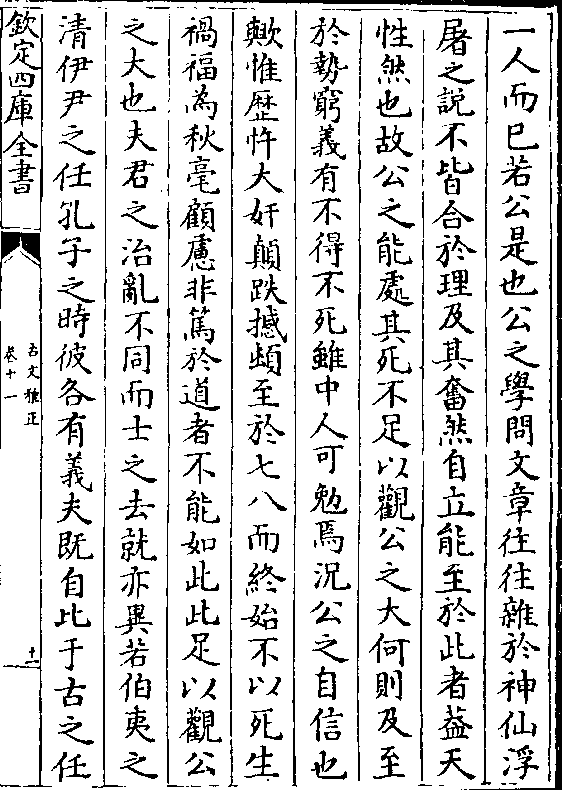 一人而已若公是也公之學問文章往往雜於神仙浮
屠之說不皆合於理及其奮然自立能至於此者葢天
性然也故公之能處其死不足以觀公之大何則及至
於勢窮義有不得不死雖中人可勉焉況公之自信也
歟惟歴忤大奸顛跌撼頓至於七八而終始不以死生
禍福為秋毫顧慮非篤於道者不能如此此足以觀公
之大也夫君之治亂不同而士之去就亦異若伯夷之
清伊尹之任孔子之時彼各有義夫既自比于古之任
欽定四庫全書
古文雅正
卷十一
十一